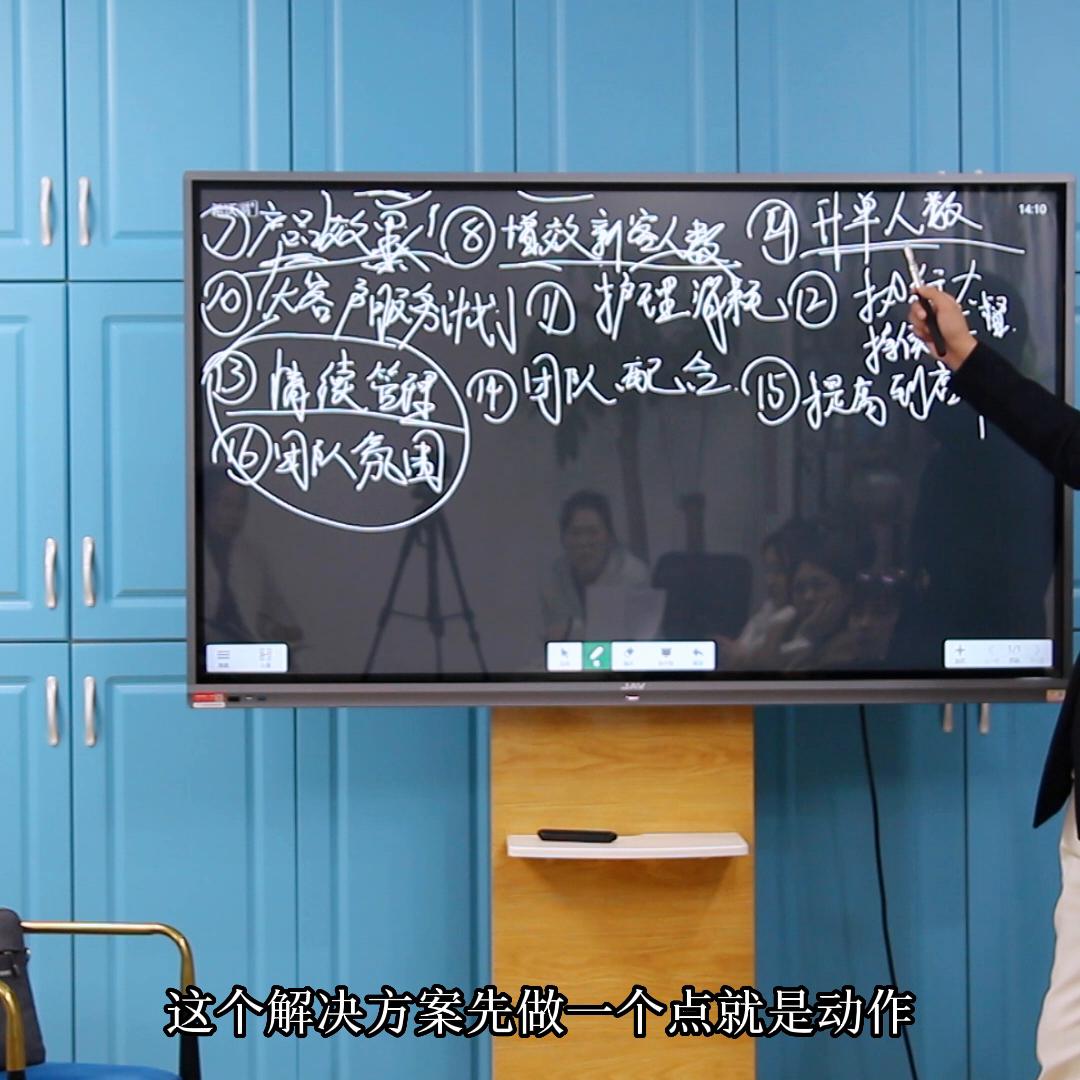 ⑦产品效果 ⑧增效新客人数 ⑨升单人数 14:10
⑩大客户服务计划 ⑪护理消耗 ⑫执行力
督
⑬情续管理 ⑭团队配合 ⑮提高到店
⑯团队氛围
这个解决方案先做一个点就是动作